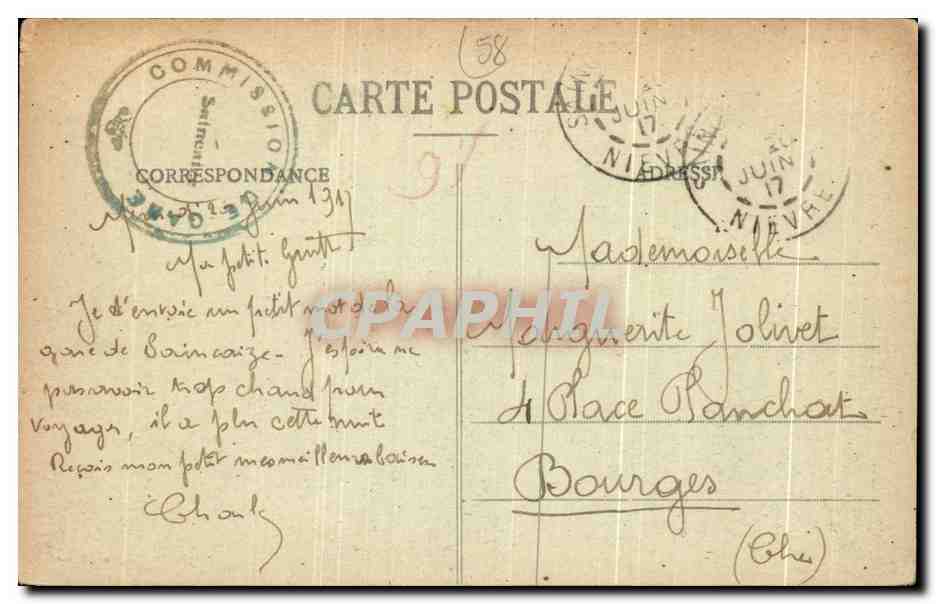 (58
CARTE POSTALE
COMMISSION DE GARE
Saincaize
JUIN
17
NIEVRE
JUIN
17
NIEVRE
CORRESPONDANCE
ADRESSE
Juin 1917
Ma petite
Je t'envoie un petit mot de la
gare de Saincaize - J'espère ne
pas avoir trop chaud pour
voyager, il a plu cette nuit
Reçois mon petit mes meilleurs baisers
Mademoiselle
Marguerite Jolivet
4 Place Planchat
Bourges
(Cher)
CPAPHIL